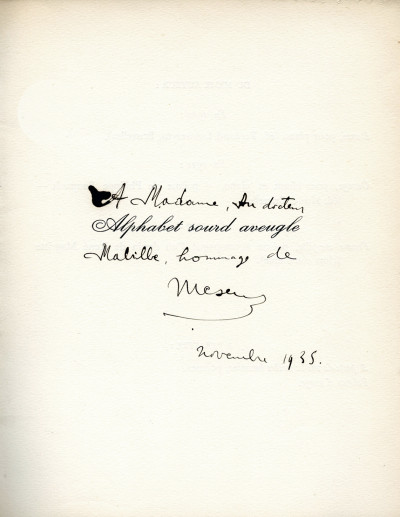 A Madame, Au docteur
Alphabet sourd aveugle
Matille, hommage de
Mesens
novembre 1935.